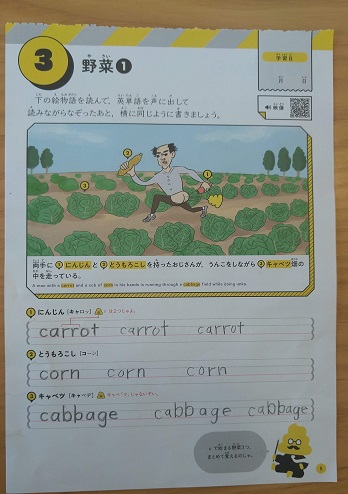 3
野菜❶
学習日
月 日
音声
下の絵物語を読んで、英単語を声に出して
読みながらなぞったあと、横に同じように書きましょう。
両手に ① にんじん と ② とうもろこし を持ったおじさんが、うんこをしながら ③ キャベツ 畑の
中を走っている。
A man with a carrot and a cob of corn in his hands is running through a cabbage field while doing unko.
① にんじん [キャロッ]
carrot carrot carrot
② とうもろこし [コーン]
corn corn corn
③ キャベツ [キャベヂ]
cabbage cabbage cabbage
c で始まる野菜3つ、
まとめて覚えるのじゃ。